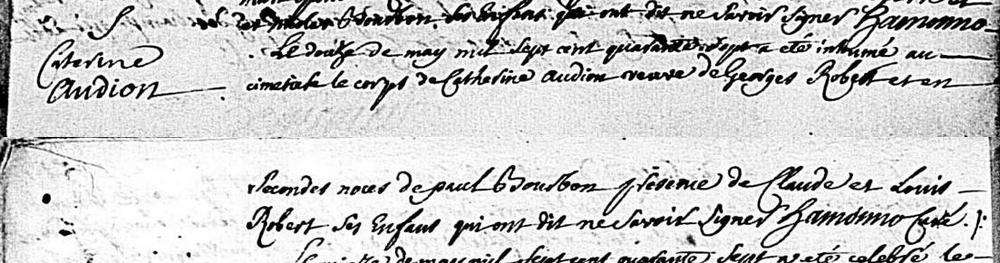 Bourbon ses Enfant qui ont dit ne savoir signer Hamonno
S
Caterine
Audion
Le douze de may mil sept cent quarante sept a été inhumé au
cimetiere le corps de Catherine Audion veuve de Georges Robert et en
secondes noces de paul Bourbon présence de Claude et Louis
Robert ses Enfans qui ont dit ne savoir signer Hamonno Curé
de may mil sept cent quarante sept a été celebré le